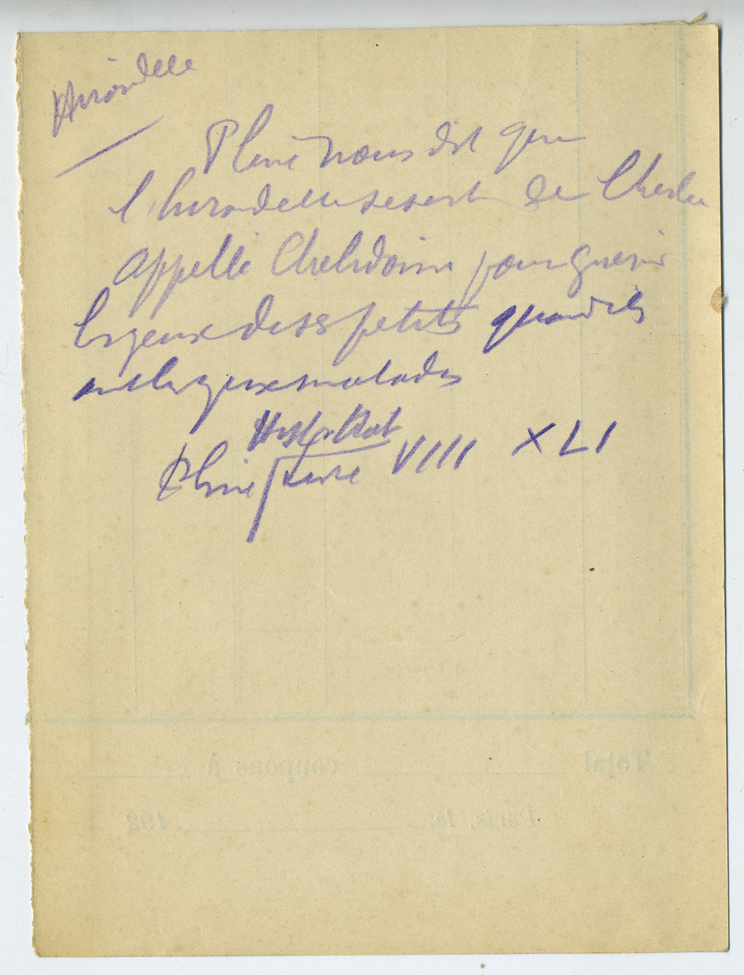 Hirondelle
Pline nous dit que
l'hirondelle se sert de
appellé Chelidoine pour guerir
les yeux de ses petits quand ils
ont les yeux malades
Hist. Nat
Pline livre VIII XLI
Total coupons à
Paris, le 192